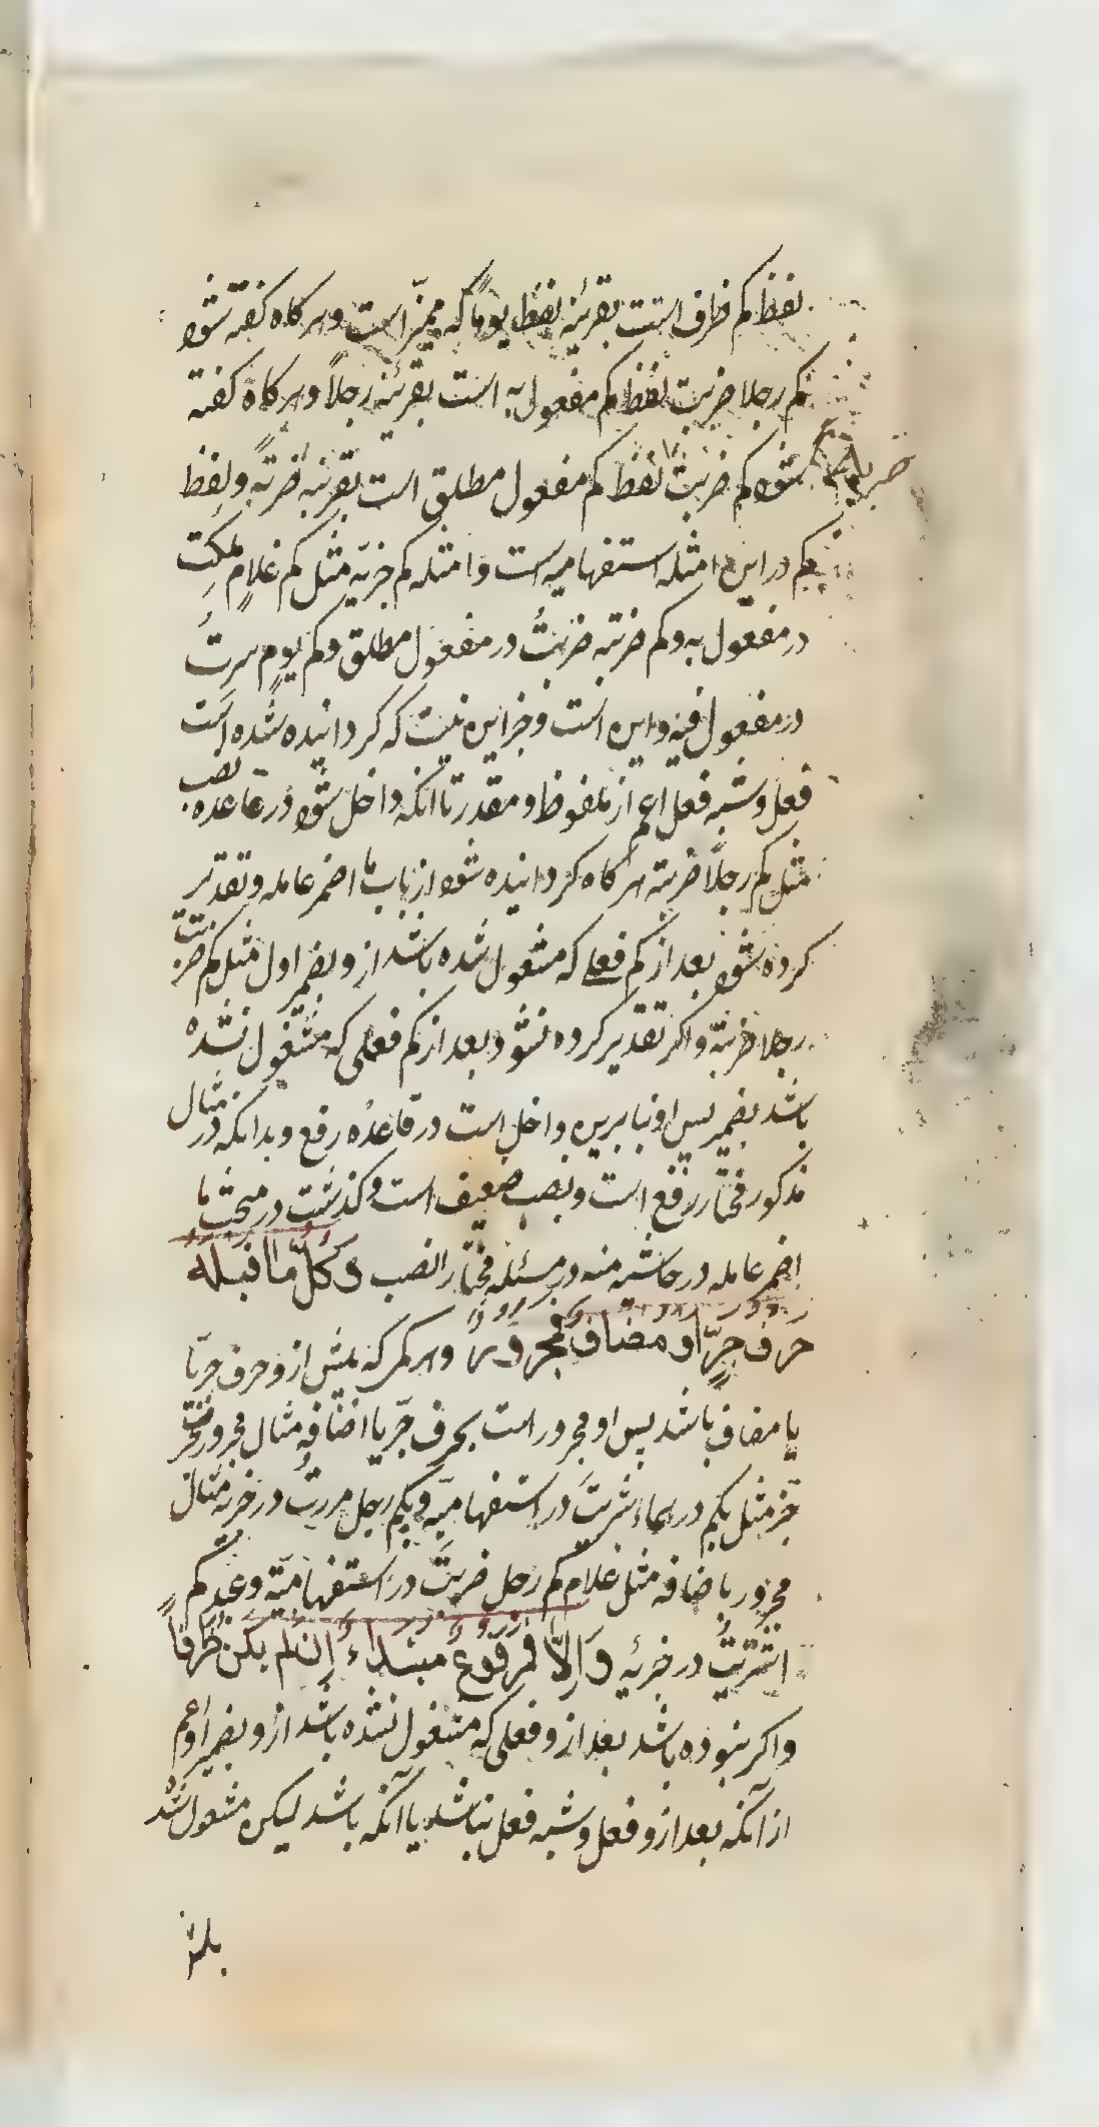 لفظ کم ظرف است بقرینه لفظ یوماً که ممیّز است و هر کاه کفته شود
کم رجلا ضربت لفظ کم مفعول به است بقرینه رجلاً و هر کاه کفته
شود کم ضربت لفظ کم مفعول مطلق است بقرینه ضربةً و لفظ
کم در این امثله استفهامیه است و امثله کم خبریّه مثل کم غلامٍ ملکت
در مفعول به و کم ضربته ضربتُ در مفعول مطلق و کم یومٍ سرتُ
در مفعول فیه و این است و جز این نیست که کردانیده شده است
فعل و شبه فعل اعم از ملفوظ و مقدر تا انکه داخل شود در قاعده نصب
مثل کم رجلاً ضربته هر کاه کردانیده شود از باب ما اضمر عامله و تقدیر
کرده شود بعد از کم فعلی که مشغول نشده باشد ازو بضمیر اول مثل کم ضربت
رجلا ضربتهٔ و اکر تقدیر کرده نشود بعد از کم فعلی که مشغول نشده
باشد بضمیر پس او بنابرین داخل است در قاعدهٔ رفع و بدانکه در مثال
مذکور مختار رفع است و نصب ضعیف است و کذشت در مبحث ما
اضمر عامله در حاشیه منه در مسئله مختار النصب وَ کُلُّ مَا قَبْلَهُ
حَرْفُ جَرٍّ اَوْ مُضَافٌ فَمَجْرُوْرٌ و هر کم که پیش ازو حرف جرّ یا
یا مضاف باشد پس او مجرور است بحرف جرّ یا اضافهٔ مثال مجرور بحرف
جرّ مثل بکم درهماً اشتریتَ در استفهامیّه و بکم رجل مررتُ در خبریه مثال
مجرور باضافه مثل غلام کم رجل ضربتَ در استفهامیّة و عبد کم
اشتریتُ در خبریّه وَ اِلَّا فَمَرْفُوْعٌ مُبْتَدَاءٌ اِنْ لَمْ یَکُنْ ظَرْفاً
و اکر نبوده باشد بعد ازو فعلی که مشغول نشده باشد ازو بضمیر او اعم
از آنکه بعد ازو فعل و شبه فعل نباشد یا آنکه باشد لیکن مشغول شد